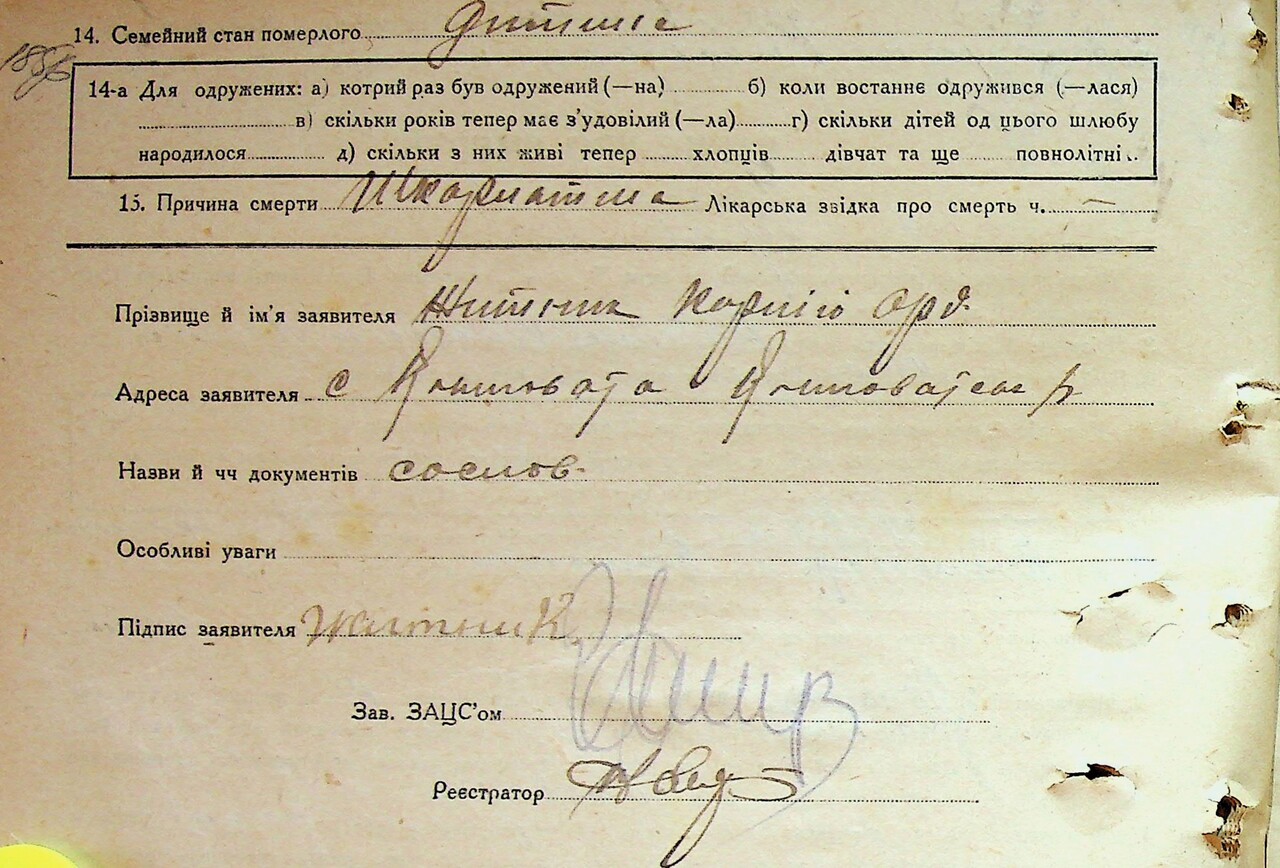 14. Семейний стан померлого дитина
1856
14-а Для одружених: а) котрий раз був одружений (—на) б) коли востаннє одружився (—лася)
в) скільки років тепер має з’удовілий (—ла) г) скільки дітей од цього шлюбу
народилося д) скільки з них живі тепер хлопців дівчат та ще повнолітні
15. Причина смерти Шкарлатина Лікарська звідка про смерть ч. —
Прізвище й ім’я заявителя Житник Корній
Адреса заявителя с Кошовата Кошоватськ р
Назви й чч документів сослов
Особливі уваги
Підпис заявителя Житник
Зав. ЗАЦС’ом
Реєстратор